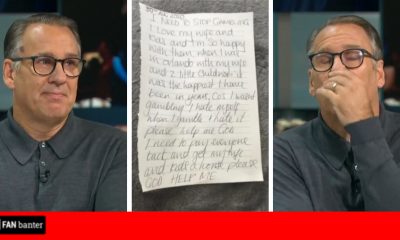 I NEED TO STOP GAMBLING
I love my wife and
kids and I'm so happy
with them. when I was
in Orlando with my wife
and 2 little children it
was the happiest I have
been in years, Cos I wasn't
gambling I hate myself
when I gamble I hate it
please help me GOD
I need to pay everyone
back and get my wife
and kids a home please
GOD HELP ME
FAN banter